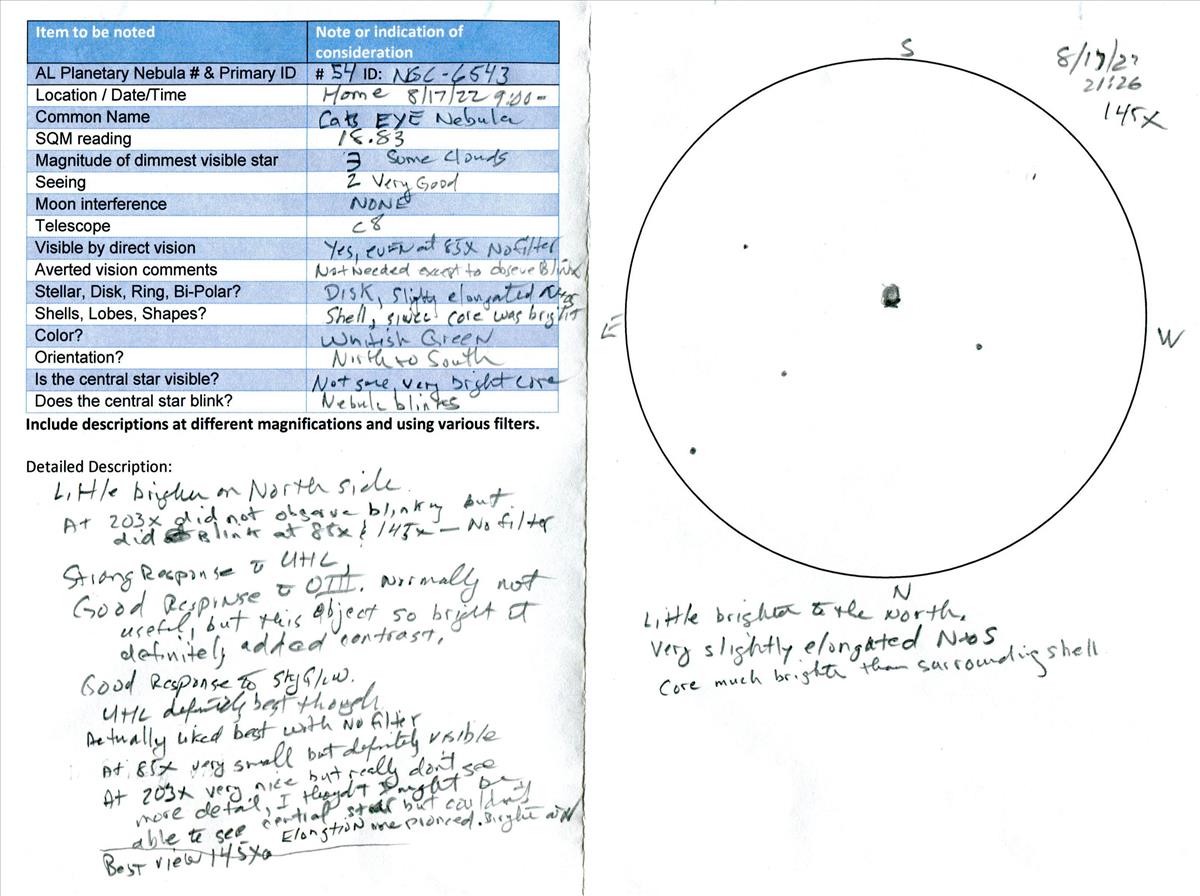 Item to be noted Note or indication of
consideration
AL Planetary Nebula # & Primary ID # 54 ID: NGC-6543
Location / Date/Time Home 8/17/22 9:00-
Common Name Cats EYE Nebula
SQM reading 18.83
Magnitude of dimmest visible star 3 Some Clouds
Seeing 2 Very Good
Moon interference NONE
Telescope C8
Visible by direct vision Yes, EVEN at 85X No filter
Averted vision comments Not Needed except to observe Blink
Stellar, Disk, Ring, Bi-Polar? DISK, slightly elongated N to S
Shells, Lobes, Shapes? Shell, since core was bright
Color? Whitish Green
Orientation? North to South
Is the central star visible? Not sure, very bright core
Does the central star blink? Nebula blinks
Include descriptions at different magnifications and using various filters.
Detailed Description:
Little brighter on North side.
At 203x did not observe blinking but
did Blink at 85x & 145x — No filter
Strong Response to UHC,
Good Response to OIII. Normally not
useful, but this object so bright it
definitely added contrast.
Good Response to SkyGlow.
UHC definitely best though
Actually liked best with No filter
At 85x very small but definitely visible
At 203x very nice but really don't see
more detail, I thought I might be
able to see central star but couldn't
Elongtion more pronced. Brighter on N
Best view 145x
S
8/17/22
21:26
145x
E
W
N
Little brighter to the north.
Very slightly elongated N to S
Core much brighter than surrounding shell